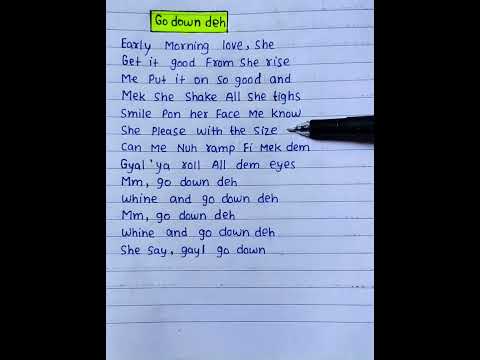 Go down deh
Early Morning love, She
Get it good From She rise
Me Put it on so good and
Mek She Shake All She tighs
Smile Pon her Face Me know
She Please with the Size
Can Me Nuh ramp Fi Mek dem
Gyal'ya roll All dem eyes
Mm, go down deh
Whine and go down deh
Mm, go down deh
Whine and go down deh
She Say, gayl go down